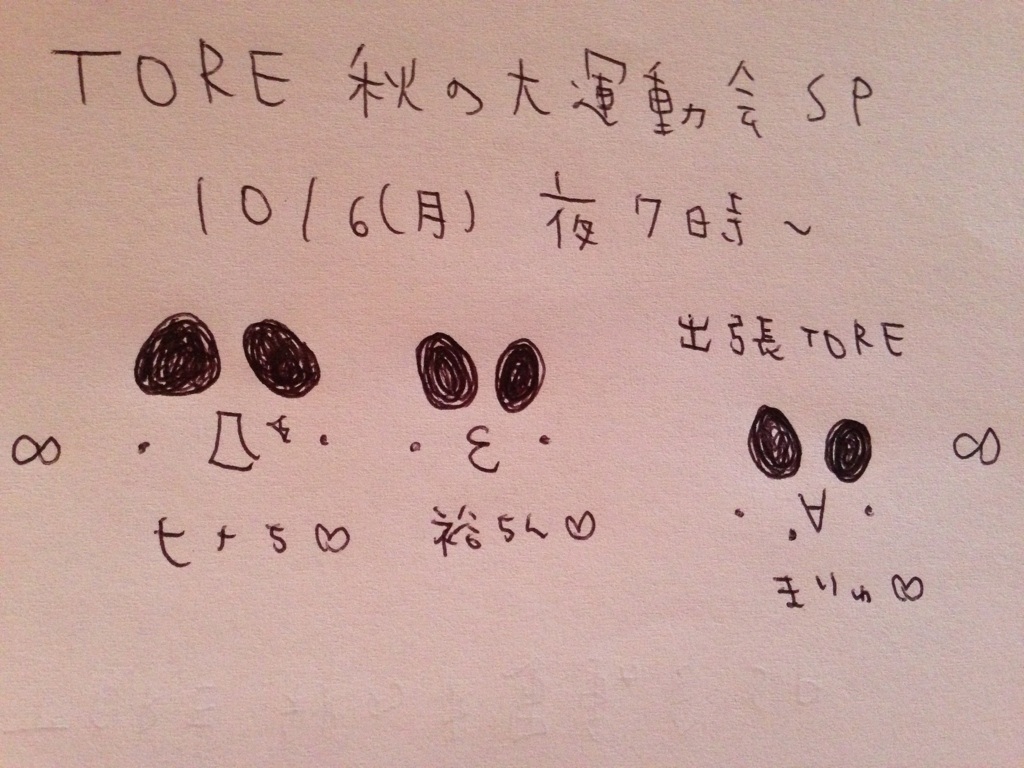 TORE 秋の大運動会SP
10/6(月) 夜7時~
出張TORE
七ナ5♡ 裕ちん♡
まりゅ♡